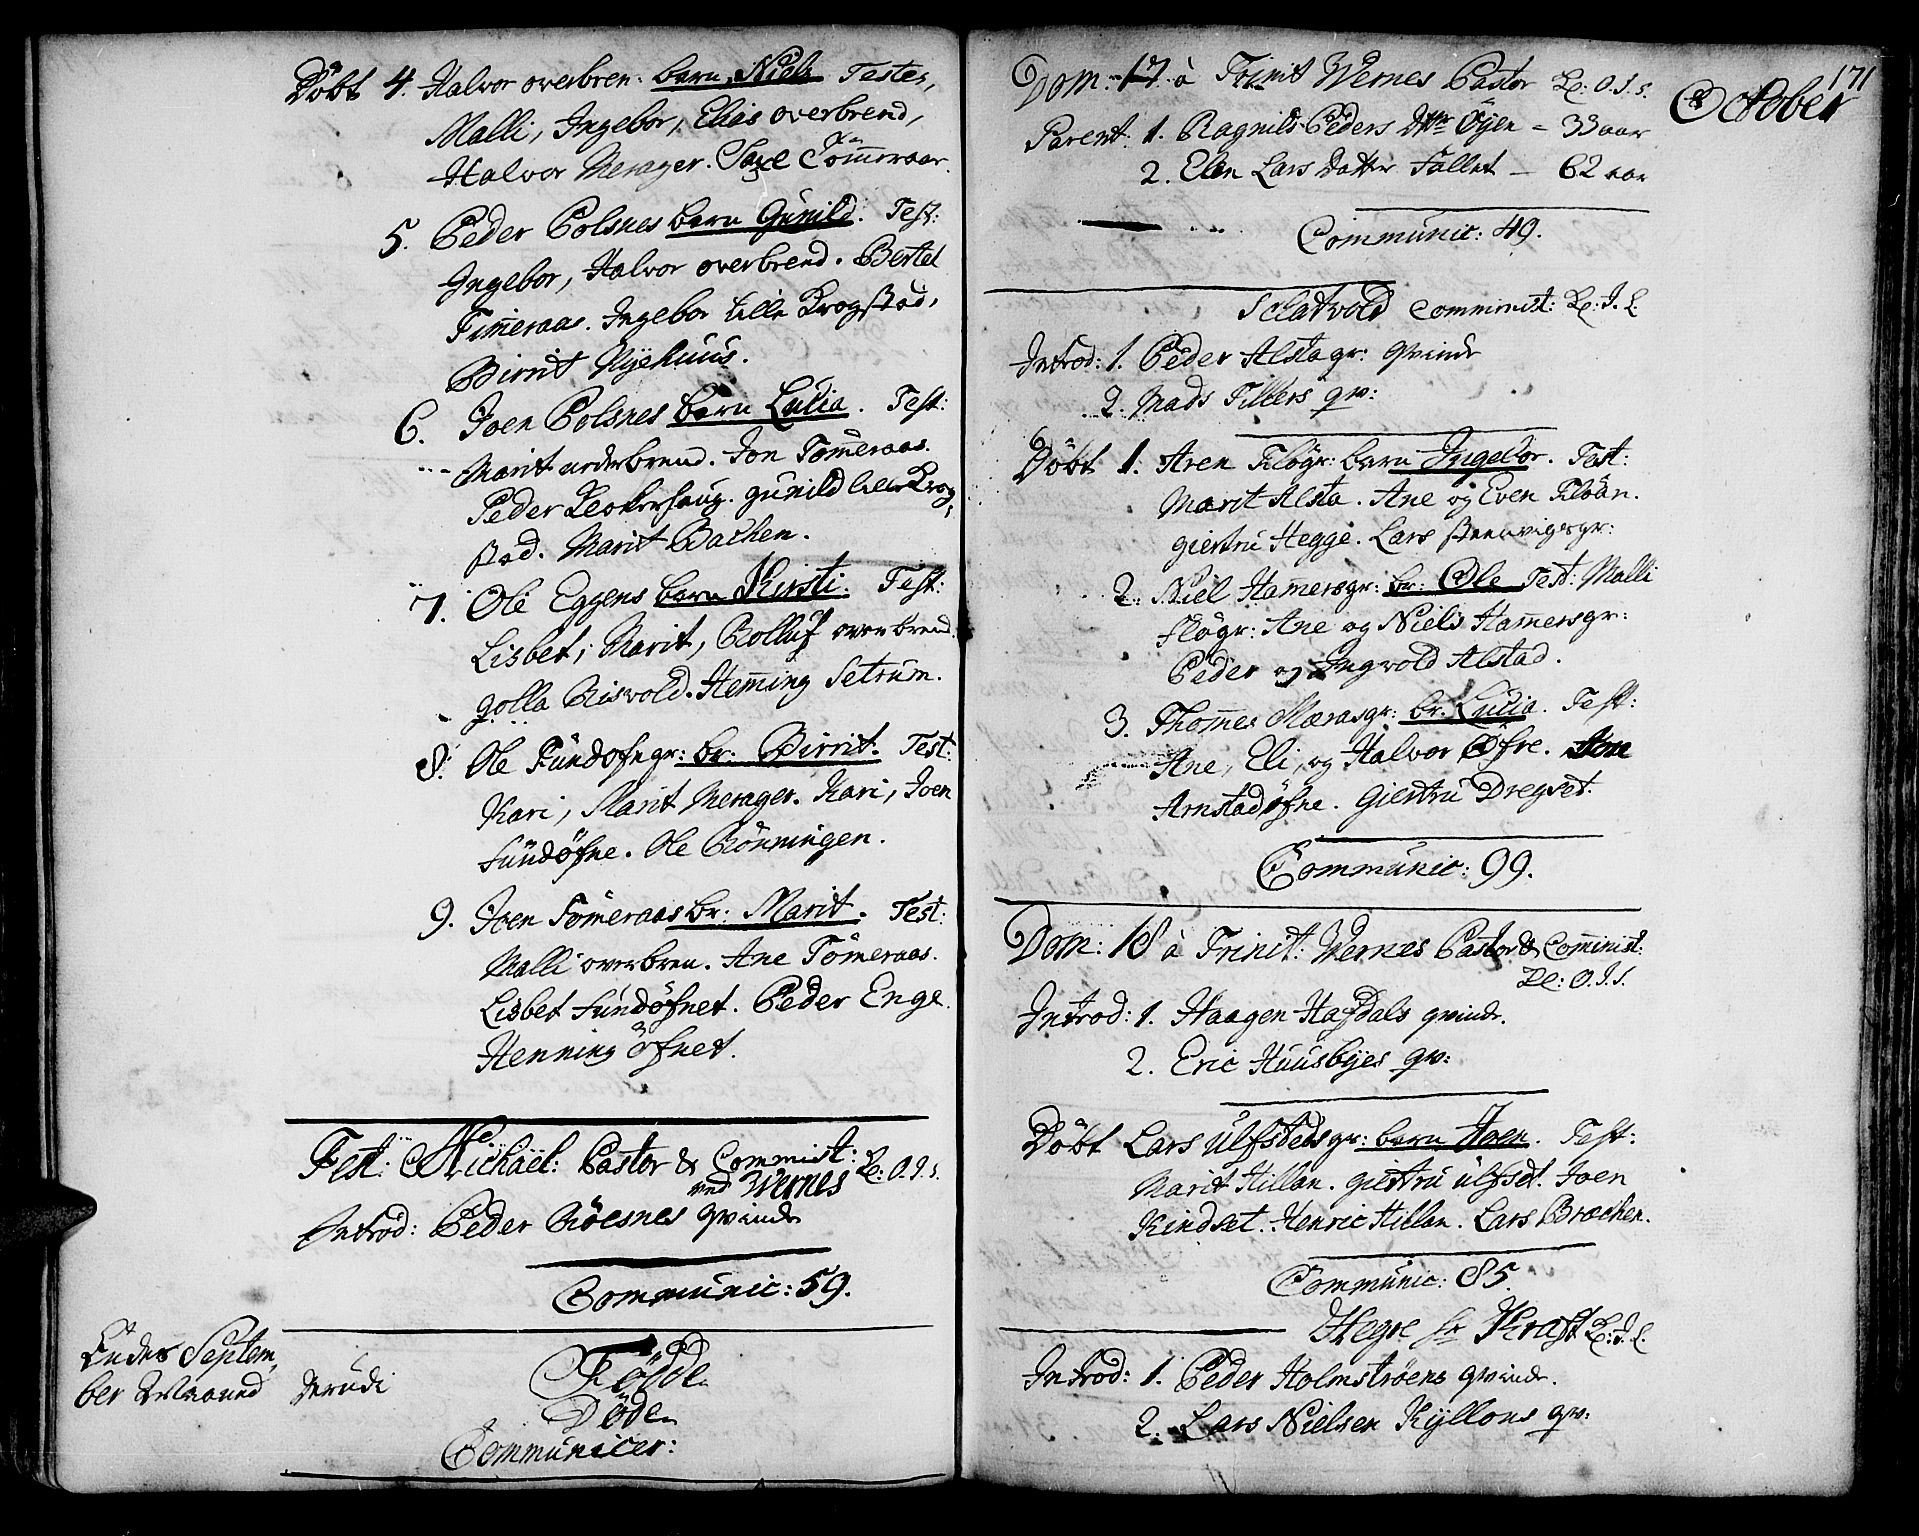 Döbt 4. Halvor overbren: barn Niels. Testes,
Malli, Ingebor, Elias overbrend,
Halvor Merager. Tömmeraas.
5. Peder Polsnes barn Gunild. Test:
Ingebor, Halvor overbrend. Bertel
Timmeraas. Ingebor lille Krogstad,
Birrit Nyehuus.
6. Joen Polsnes barn Lucia. Test:
Marit nederbrend. Jon Tømeraas.
Peder gunild lille Krog,
stad. Marit Bachen.
7. Ole Eggens barn Kirsti. Test:
Lisbet, Marit, Rolluf overbrend.
golla Risvold. Hemming Setrum.
8. Ole Fundofngr: br: Birrit. Test:
Kari, Marit Merager. Kari, Joen
fundøfne. Ole Rönningen.
9. Joen Tømeraas br: Marit. Test:
Malli overbren. Ane Tømeraas.
Lisbet fundøfnet. Peder Enge.
Henning öfnet.
Fest: Michaël: Pastor & Commist:
ved Wernes Le: O.I.s.
Introd: Peder Röesnes qvinde
Communic: 59.
Endes Septem,
ber Maaned
derudi
Födde
Døde
Communicer:
171
October
Dom: 17. à Trinit Wernes Pastor Le: O.I.s.
Parent: 1. Ragnild Peders Dttr Öyen - 33 aar
2. Elen Lars Datter Fallet - 62 aar
Communic: 49.
Sclatvold Comminist: Le: I. L
Introd: 1. Peder Alstagr: qvinde
2. Mads Tillers qv:
Döbt 1. Aren Fløgr: barn Ingebor. Test:
Marit Alsta. Ane og Even Fløan.
giertru Hegge. Lars steenvigsgr:
2. Niel Hamersgr: br: Ole Test: Malli
fløgr: Ane og Niels Hammersgr:
Peder og Ingvold Alstad.
3. Thommes Mærasgr: br: Lucia. Test:
Ane, Eli, og Halvor Øfre.
Arnstadøfne. giertru Dreyset.
Communic: 99.
Dom: 18 à Trinit: Wernes Pastor & Comminist:
Le: O.I.s.
Introd: 1. Haagen Hafdals qvinde.
2. Eric Huusbyes qv:
Döbt Lars Ulfstedsgr: barn Joen. Test:
Marit Hillan. giertru ulfset. Joen
Kindset. Henric Hillan. Lars Brachen.
Communic: 85.
Hegre hr Kraft Le: I. L.
Introd: 1. Peder Holmstrøens qvinde.
2. Lars Nielsen Kyllons qv: